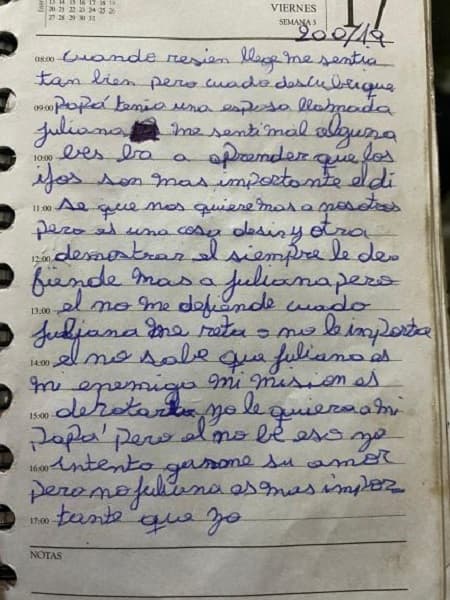 VIERNES
SEMANA 3
17
13 14 15 16 17 18 19
20 21 22 23 24 25 26
27 28 29 30 31
200/19
08:00 cuando resien llege me sentia
tan bien pero cuado descubri que
09:00 papá tenia una esposa llamada
juliana me senti mal alguna
10:00 ves ba a aprender que los
ijos son mas importante el di
11:00 se que nos quiere mas a nosotros
pero es una cosa desir y otra
12:00 demostrar el siempre le de
fiende mas a juliana pero
13:00 el no me defiende cuado
juliana me reta o no le importa
14:00 el no sabe que juliana es
mi enemiga mi mision es
15:00 derotarla yo le quiero a mi
papá pero el no be eso yo
16:00 intento ganarme su amor
pero no juliana es mas impor
17:00 tante que yo
NOTAS